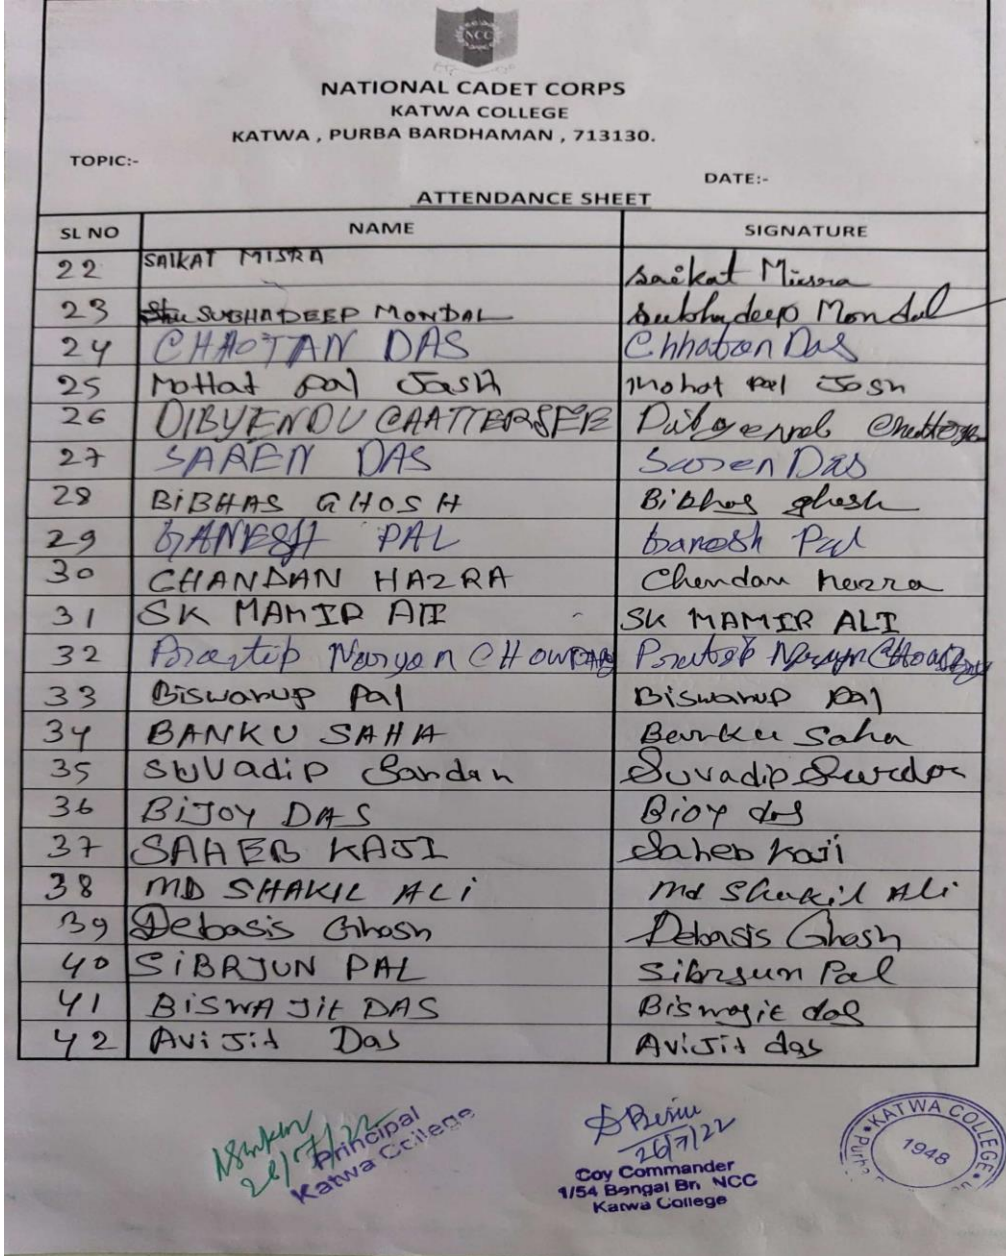 NCC
NATIONAL CADET CORPS
KATWA COLLEGE
KATWA , PURBA BARDHAMAN , 713130.
TOPIC:-
DATE:-
ATTENDANCE SHEET
SL NO NAME SIGNATURE
22 SAIKAT MISRA Saikat Misra
23 SUBHADEEP MONDAL Subhadeep Mondal
24 CHAOTAN DAS Chhaton Das
25 MoHat pal Jash Mohot pal Josh
26 DIBYENDU CHATTERJEE
27 SAREN DAS Saren Das
28 BiBHAS GHOSH Bibhas ghosh
29 GANESH PAL Ganesh Pal
30 CHANDAN HAZRA Chandan hazra
31 SK MAMIR ALI SK MAMIR ALI
32 Naryan CHOWDHARY
33 Biswarup Pal Biswarup pal
34 BANKU SAHA Banku Saha
35 SUVadip Suvadip
36 BiJOY DAS Bioy das
37 SAHEB KAJI Saheb Kaji
38 MD SHAKIL ALi Md Shakil Ali
39 Debasis Ghosh Debasis Ghosh
40 SiBRJUN PAL Sibrjun Pal
41 BiSWAJit DAS Biswajit das
42 AviJit Das AviJit das
26/7/22
Principal
Katwa College
26/7/22
Coy Commander
1/54 Bengal Bn NCC
Katwa College
KATWA COLLEGE
1948